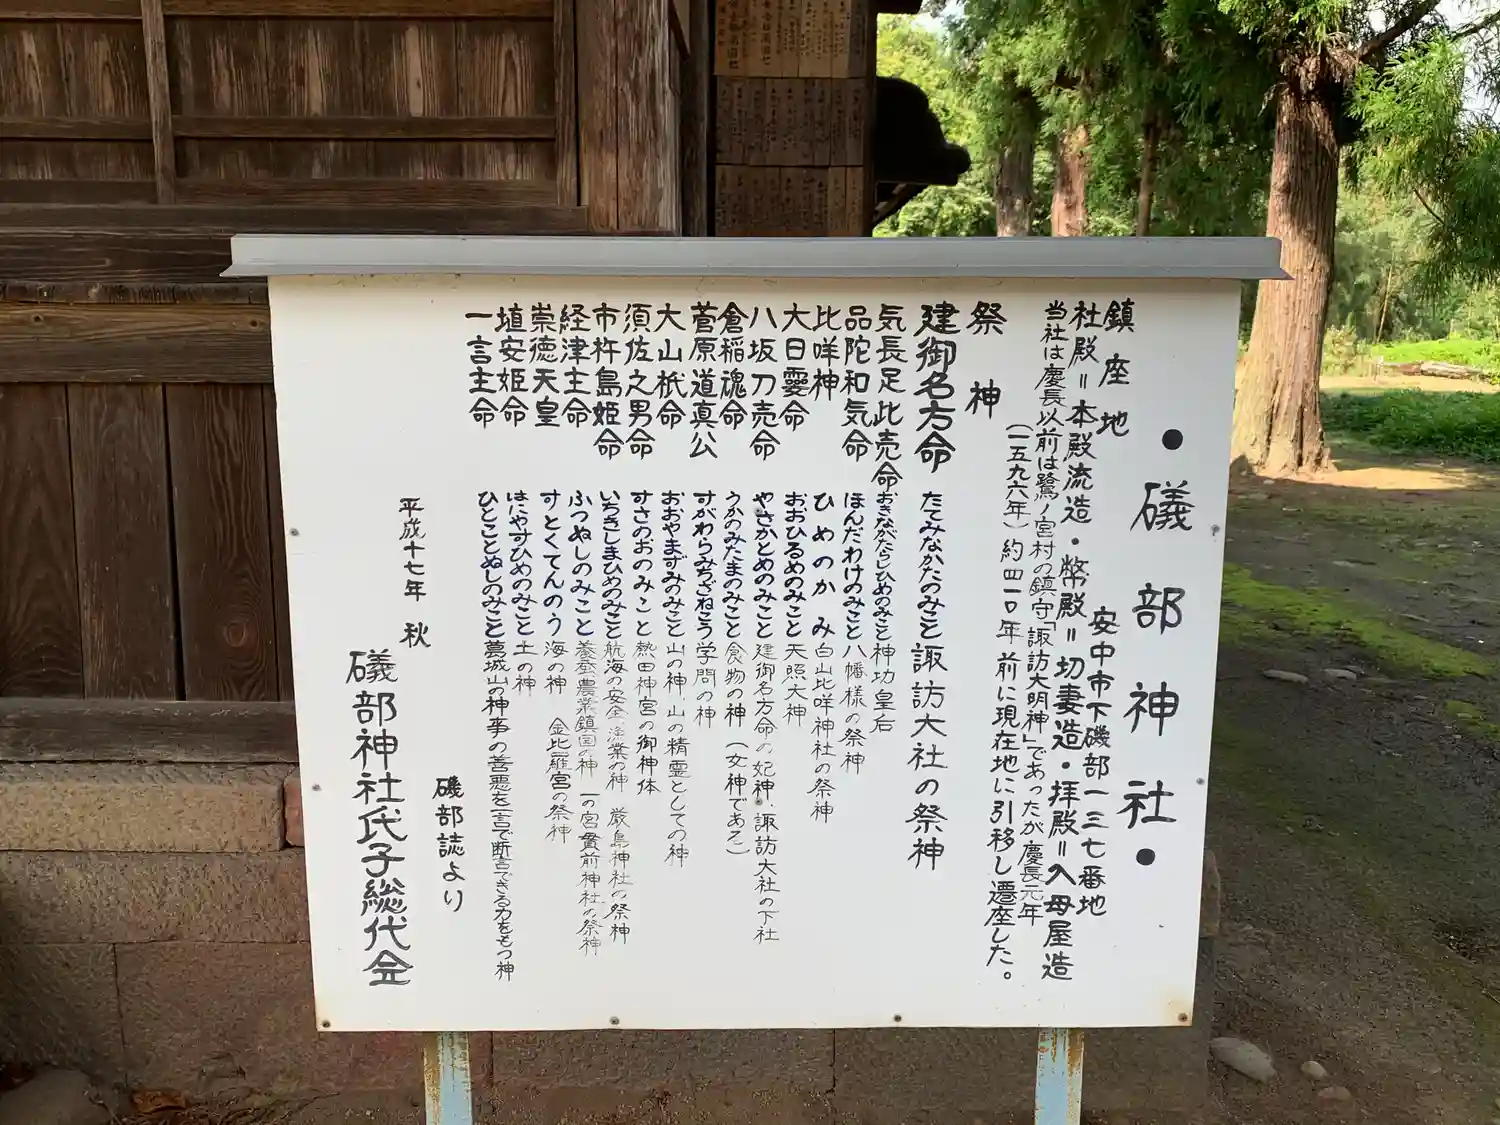 ・礒部神社・
鎮座地 安中市下磯部一三七番地
社殿＝本殿流造・幣殿＝切妻造・拝殿＝入母屋造
当社は慶長以前は鷺ノ宮村の鎮守「諏訪大明神」であったが慶長元年
（一五九六年）約四一〇年前に現在地に引移し遷座した。
祭神
建御名方命 たてみなかたのみこと 諏訪大社の祭神
気長足比売命 おきながたらしひめのみこと 神功皇后
品陀和気命 ほんだわけのみこと 八幡様の祭神
比咩神 ひめのかみ 白山比咩神社の祭神
大日孁命 おおひるめのみこと 天照大神
八坂刀売命 やさかとめのみこと 建御名方命の妃神、諏訪大社の下社
倉稲魂命 うかのみたまのみこと 食物の神（女神である）
菅原道真公 すがわらみちざねこう 学問の神
大山祇命 おおやまずみのみこと 山の神、山の精霊としての神
須佐之男命 すさのおのみこと 熱田神宮の御神体
市杵島姫命 いちきしまひめのみこと 航海の安全、漁業の神 厳島神社の祭神
経津主命 ふつぬしのみこと 養蚕農業鎮国の神 一の宮貫前神社の祭神
崇徳天皇 すとくてんのう 海の神 金比羅宮の祭神
埴安姫命 はにやすひめのみこと 土の神
一言主命 ひとことぬしのみこと 葛城山の神事の善悪を一言で断言できる力をもつ神
磯部誌より
平成十七年 秋
礒部神社氏子総代会